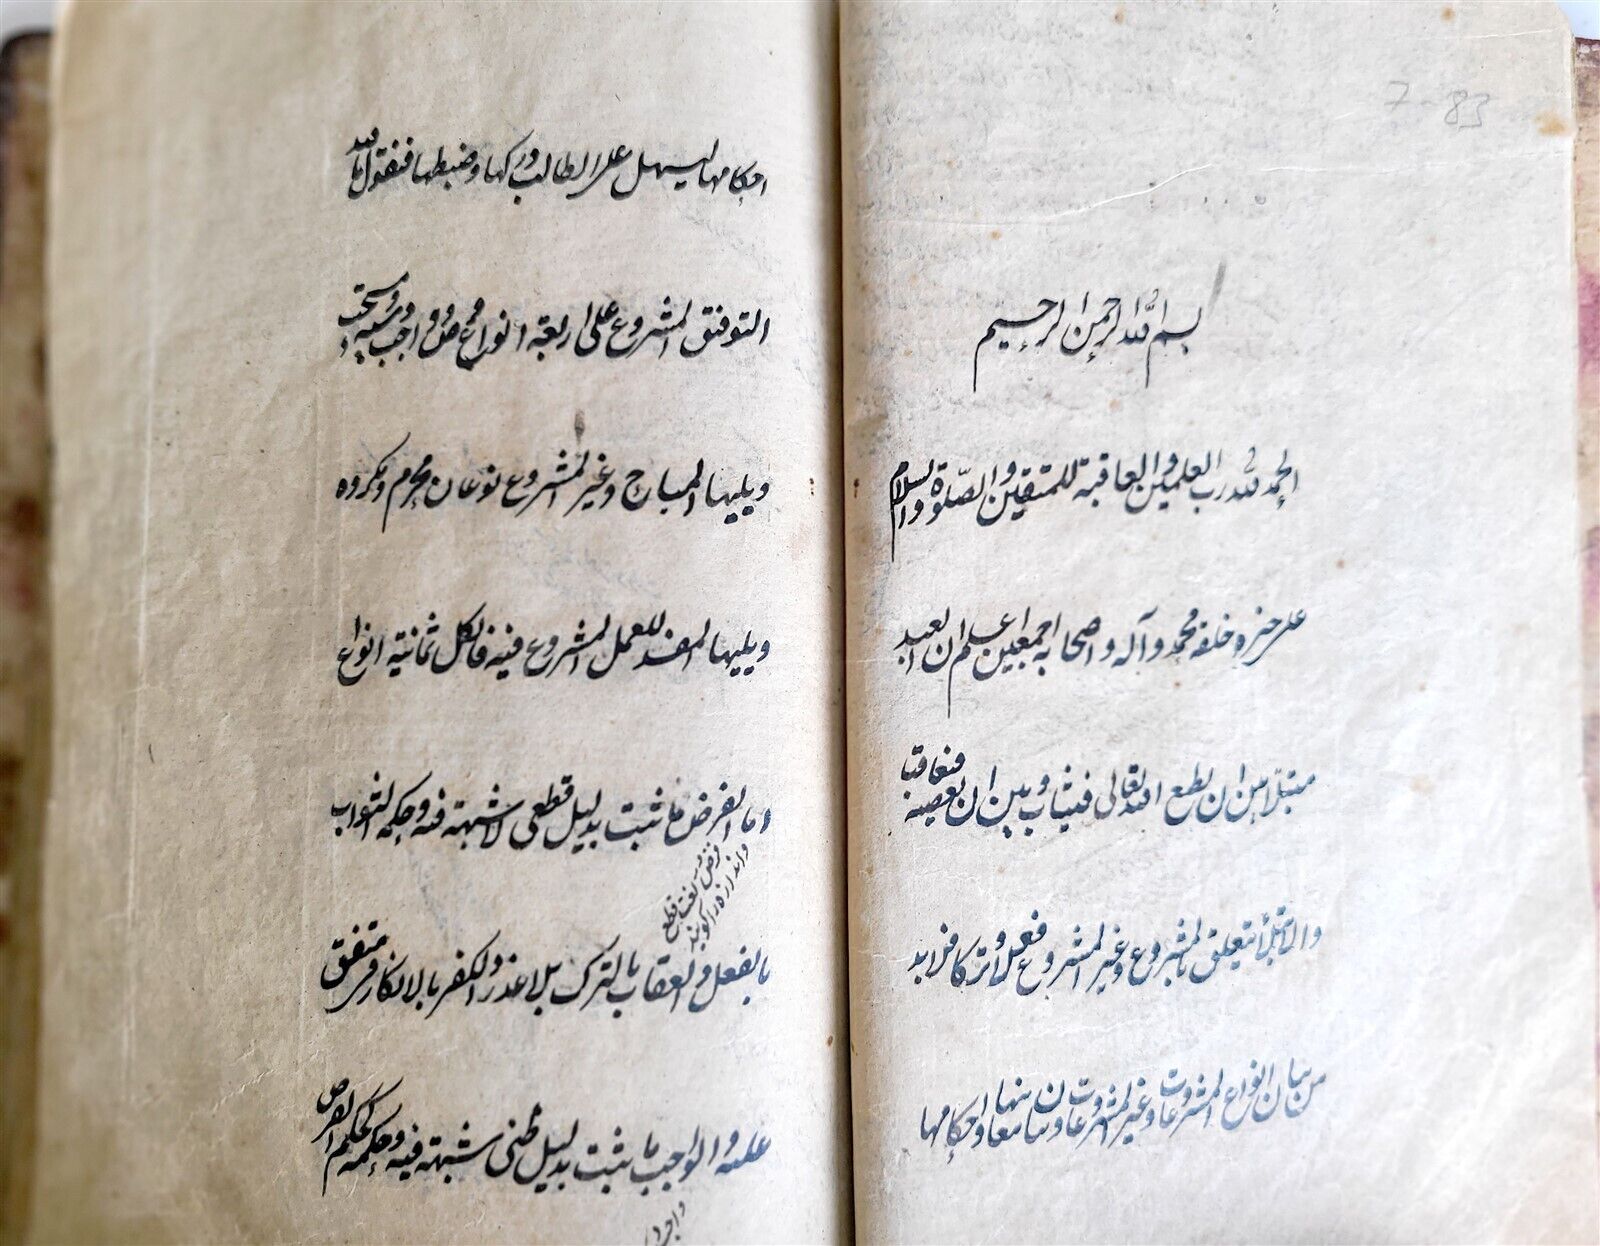 7-83
بسم الله الرحمن الرحيم
الحمد لله رب العلمين والعاقبة للمتقين والصلوة والسلام
على خير خلقه محمد وآله واصحابه اجمعين اعلم ان العبد
مبتلا بين ان يطيع الله تعالى فيثاب وبين ان يعصيه فيعاقب
والابتلاء يتعلق بالمشروع وغير المشروع فعلا وتركا فلابد
من بيان انواع المشروعات وغير المشروعات وبيان معانيها واحكامها
احكامها ليسهل على الطالب دركها وضبطها فنقول بالله
التوفيق المشروع على اربعة انواع فرض وواجب وسنة ومستحب
ويليها المباح وغير المشروع نوعان محرم ومكروه
ويليها المفسد للعمل المشروع فيه فالكل ثمانية انواع
واما الفرض فما ثبت بدليل قطعي لا شبهة فيه وحكمه الثواب
فرض لغت قطع
واندازه را گویند
بالفعل والعقاب بالترك بلا عذر والكفر بالانكار في متفق
عليه والواجب ما ثبت بدليل ظني شبهة فيه وحكمه كحكم الفرض